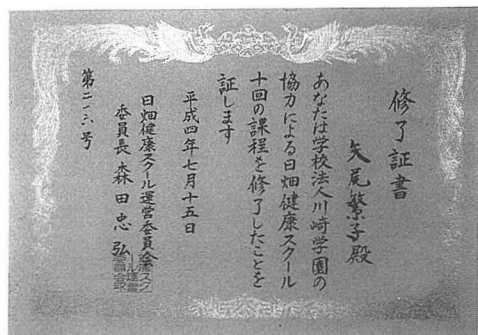 修了証書
矢尾繁子殿
あなたは学校法人川崎学園の
協力による日畑健康スクール
十回の課程を修了したことを
証します
平成四年七月十五日
日畑健康スクール運営委員会
委員長 森田忠弘
第二一六号